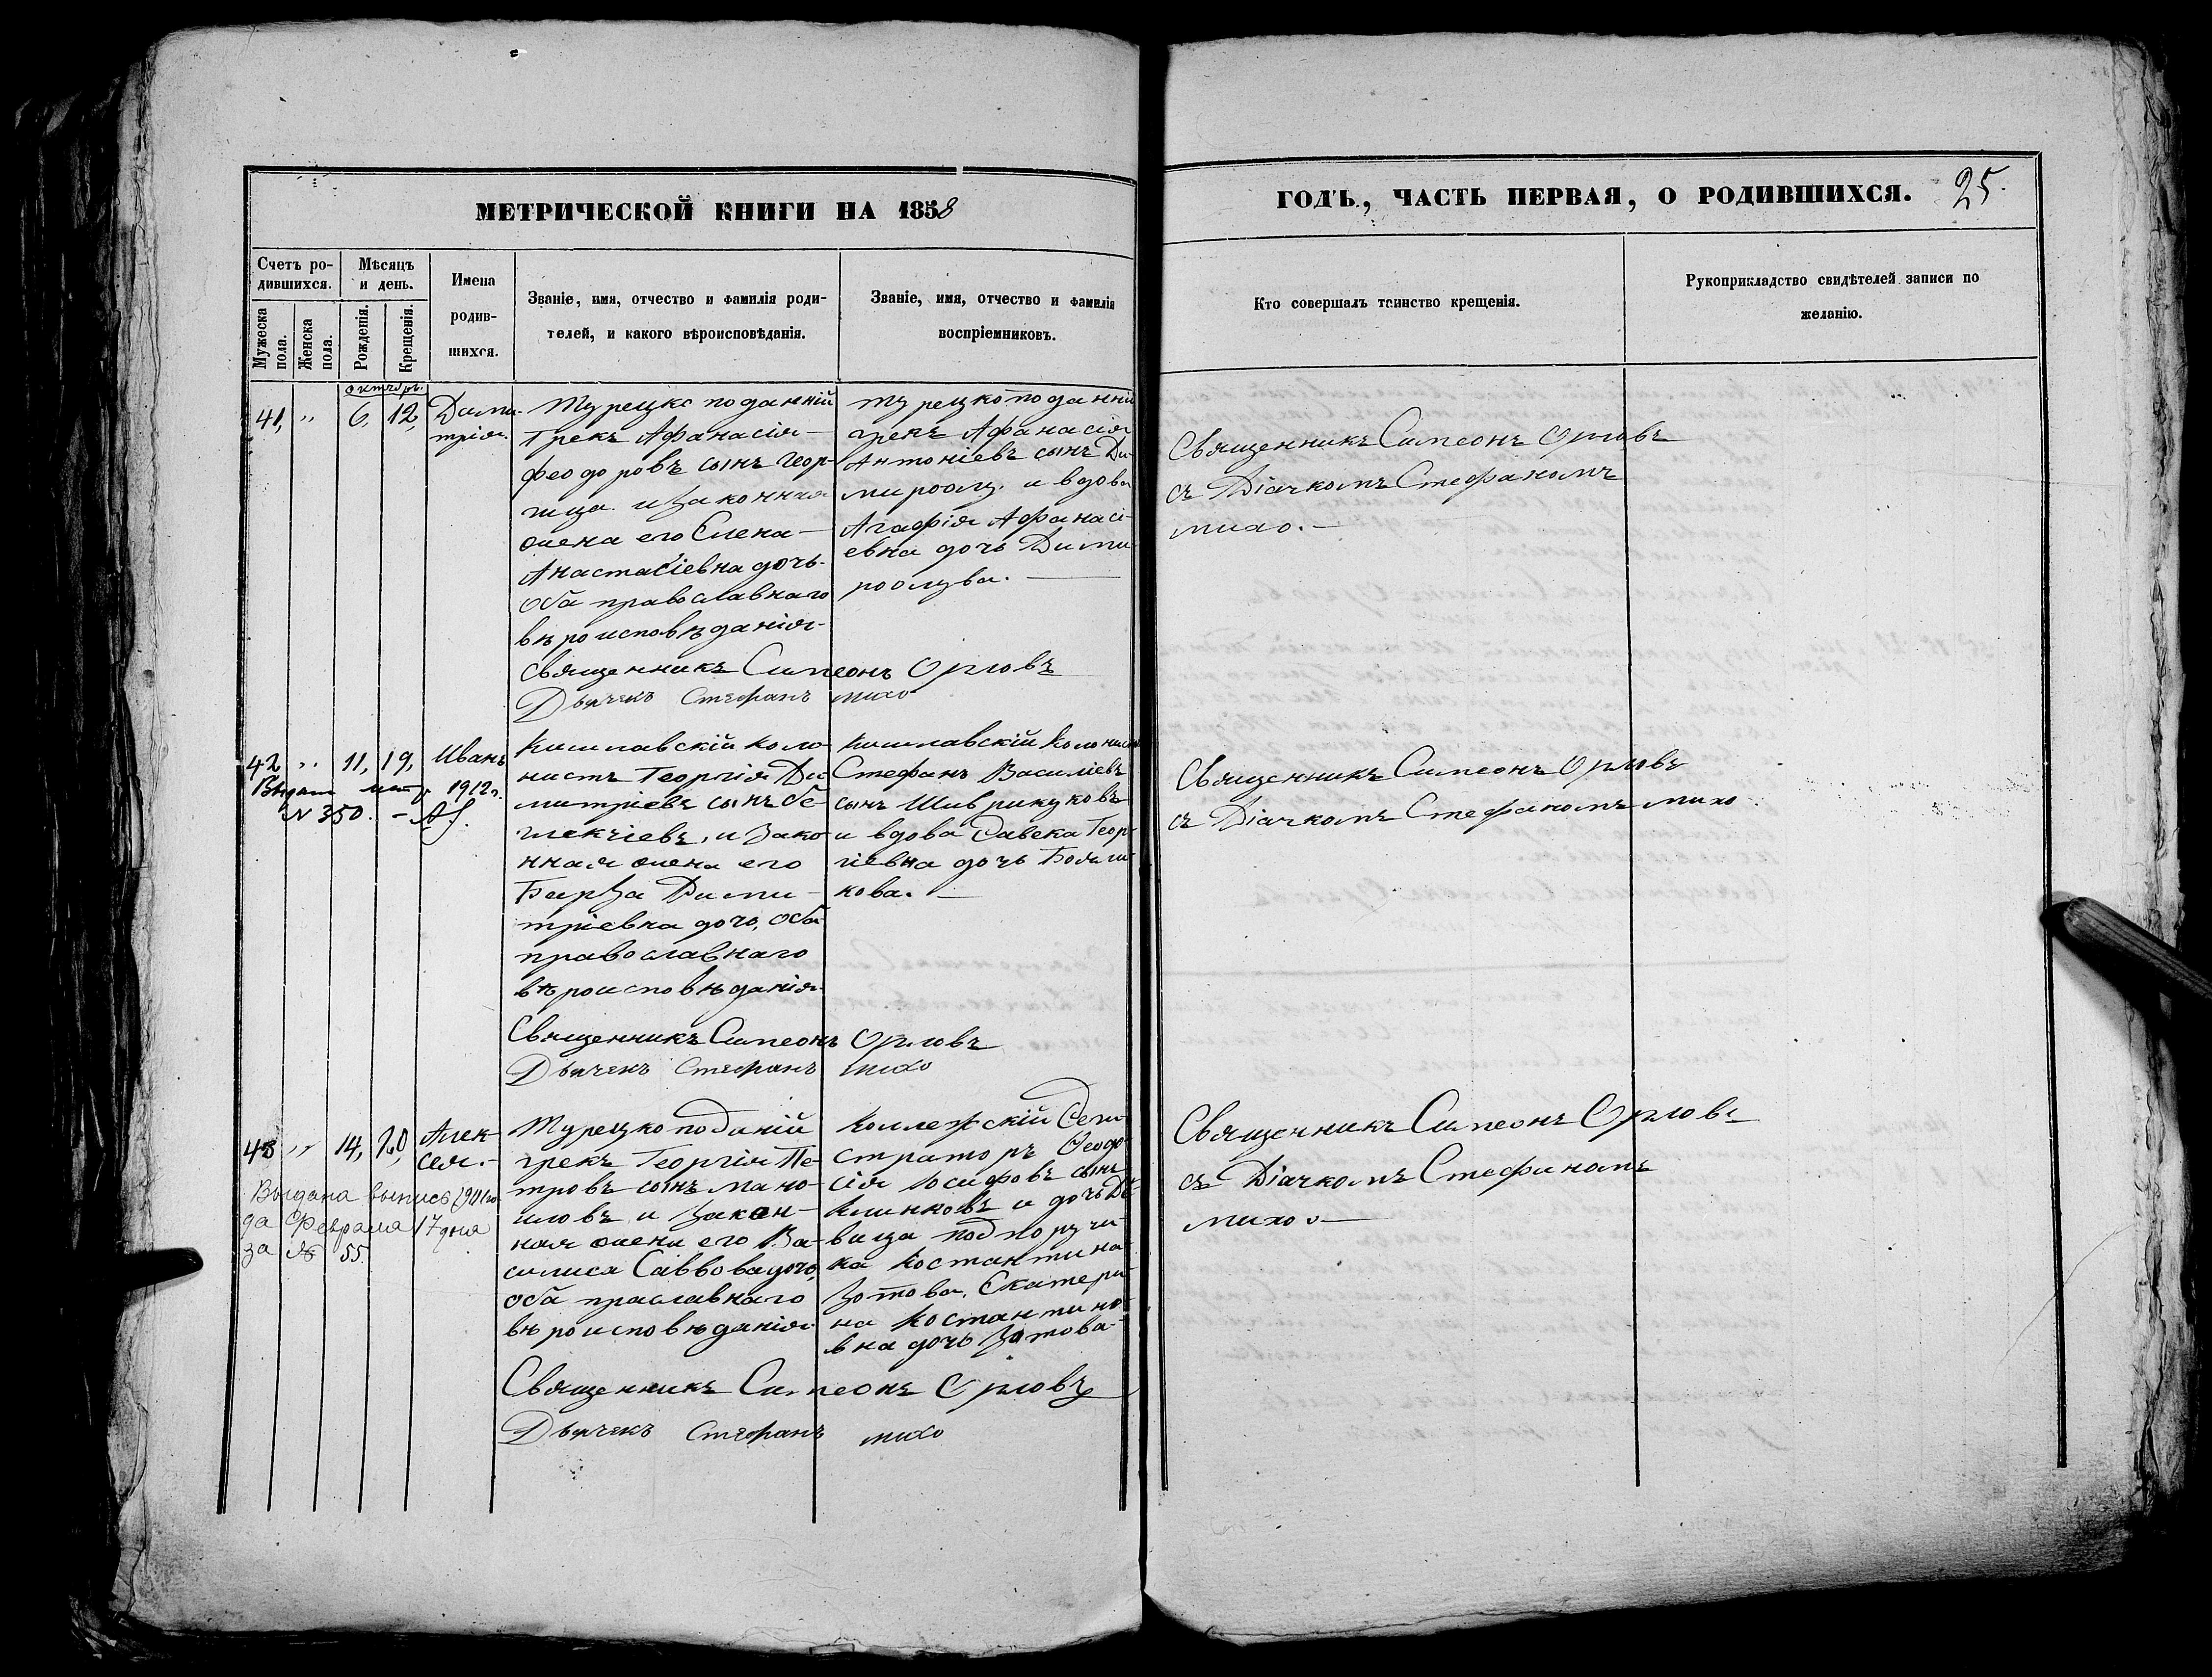 МЕТРИЧЕСКОЙ КНИГИ НА 1858
ГОДЪ, ЧАСТЬ ПЕРВАЯ, О РОДИВШИХСЯ.
25.
Счетъ ро-
дившихся.
Мужеска
пола.
Женска
пола.
Мѣсяцъ
и день.
Рожденія.
Крещенія.
Имена
родив-
шихся.
Званіе, имя, отчество и фамилія роди-
телей, и какого вѣроисповѣданія.
Званіе, имя, отчество и фамилія
воспріемниковъ.
Кто совершалъ таинство крещенія.
Рукоприкладство свидѣтелей записи по
желанію.
41, „ 6, 12,
Дими-
трія.
Турецко поданній
грекъ Афанасія
Феодоровъ сынъ Геор-
и законная
жена его Елена
Анастасіевна дочь.
Оба православнаго
вѣроисповѣданія.
Священникъ Симеонъ Орловъ
Дьячекъ Стефанъ михо
Турецкоподанній
грекъ Афанасія
Антоніевъ сынъ
и вдова
Агафія Афанасі-
евна дочь
Священникъ Симеонъ Орловъ
съ Діачкомъ Стефаномъ
михо.
42 „ 11, 19,
Иванъ
1912 г.
№ 350.
Кишлавскій коло-
нистъ Георгія Ди-
митріевъ сынъ
и зако-
нная жена его
Дими-
тріевна дочь, оба
православнаго
вѣроисповѣданія.
Священникъ Симеонъ Орловъ
Дьячекъ Стефанъ михо
Кишлавскій колонистъ
Стефанъ Василіевъ
сынъ
и вдова Савека Геор-
гіевна дочь
кова.
Священникъ Симеонъ Орловъ
съ Діачкомъ Стефаномъ михо
43 „ 14, 20,
Алек-
сея.
Выдана выпись 1911 го-
да Февраля 17 дня
за № 55.
Турецкоподаній
грекъ Георгія Пе-
тровъ сынъ Мано-
иловъ и закон-
ная жена его Ва-
силиса Саввова дочь,
оба праславнаго
вѣроисповѣданія
Священникъ Симеонъ Орловъ
Дьячекъ Стефанъ михо
Коллежскій Реги-
страторъ Феодо-
сія Іосифовъ сынъ
и дочь дѣ-
вица подпоручи-
ка Костантина
Зотова, Екатери-
на Костантино-
вна дочь Зотова
Священникъ Симеонъ Орловъ
съ Діачкомъ Стефаномъ
михо